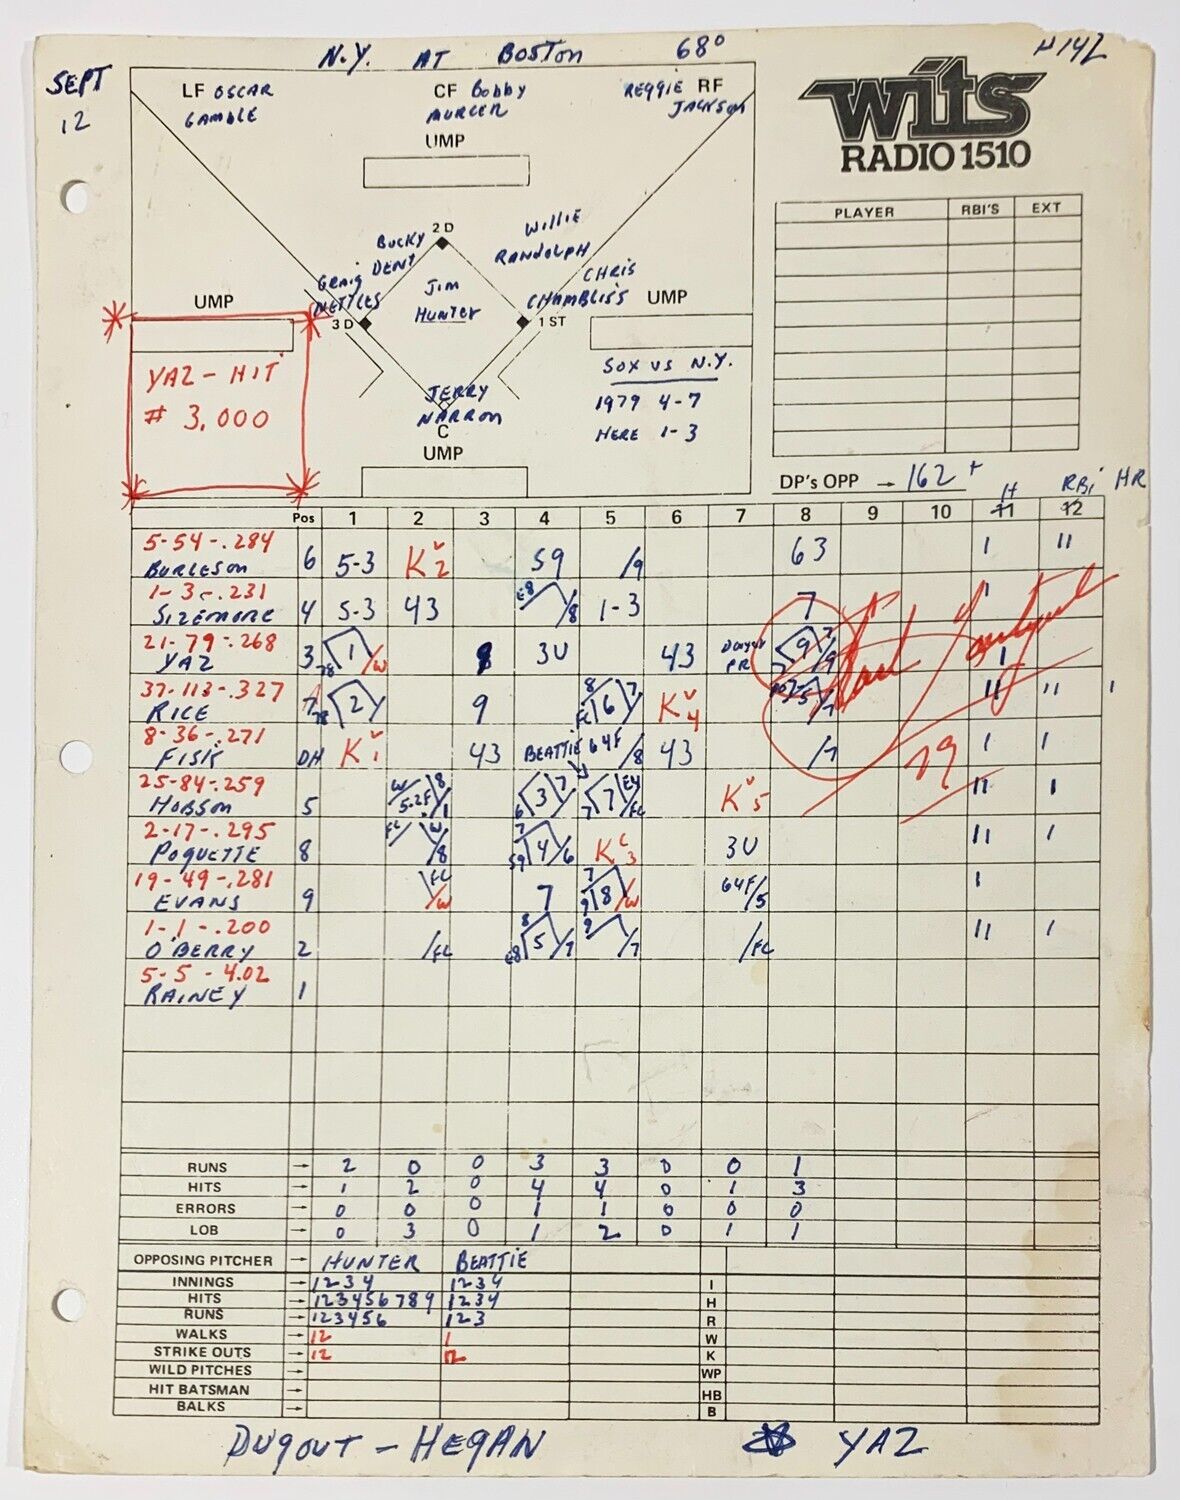 N.Y. AT BOSTON 68°
#142
SEPT
12
LF OSCAR
GAMBLE
CF BOBBY
MURCER
REGGIE RF
JACKSON
UMP
wits
RADIO 1510
PLAYER RBI'S EXT
2 D
BUCKY
DENT
WILLIE
RANDOLPH
GRAIG
NETTLES
JIM
HUNTER
CHRIS
CHAMBLISS
UMP
UMP
3 D
1 ST
YAZ - HIT
# 3,000
SOX VS N.Y.
1979 4-7
HERE 1-3
JERRY
NARRON
C
UMP
DP's OPP → 162+
H RBI HR
Pos 1 2 3 4 5 6 7 8 9 10 11 12
5-54-.284
BURLESON 6 5-3 K 2 59 /9 63 1 11
1-3-.231
SIZEMORE 4 5-3 43 E8 /8 1-3 7 1
21-79-.268
YAZ 3 78 1 /W 8 3U 43 Dwyer PR 7 9 7 /9 1
37-113-.327
RICE 7 78 2 9 8 6 7 FC K 4 5 /7 11 11 1
8-36-.271
FISK DH K 1 43 BEATTIE 64F /8 43 /7 1 1
25-84-.259
HOBSON 5 W 8 5-2F /1 6 3 7 7 7 E4 FC K 5 11 1
2-17-.295
POQUETTE 8 FC W /8 7 59 4 /6 K C 3 3U 11 1
19-49-.281
EVANS 9 FC /W 7 7 9 8 /W 64F /5 1
1-1-.200
O'BERRY 2 /FC 8 E8 5 /7 9 /7 /FC 11 1
5-5-4.02
RAINEY 1
79
RUNS → 2 0 0 3 3 0 0 1
HITS → 1 2 0 4 4 0 1 3
ERRORS → 0 0 0 1 1 0 0 0
LOB → 0 3 0 1 2 0 1 1
OPPOSING PITCHER → HUNTER BEATTIE
INNINGS → 1234 1234 I
HITS → 123456789 1234 H
RUNS → 123456 123 R
WALKS → 12 1 W
STRIKE OUTS → 12 12 K
WILD PITCHES → WP
HIT BATSMAN → HB
BALKS → B
DUGOUT - HEGAN ☆ YAZ